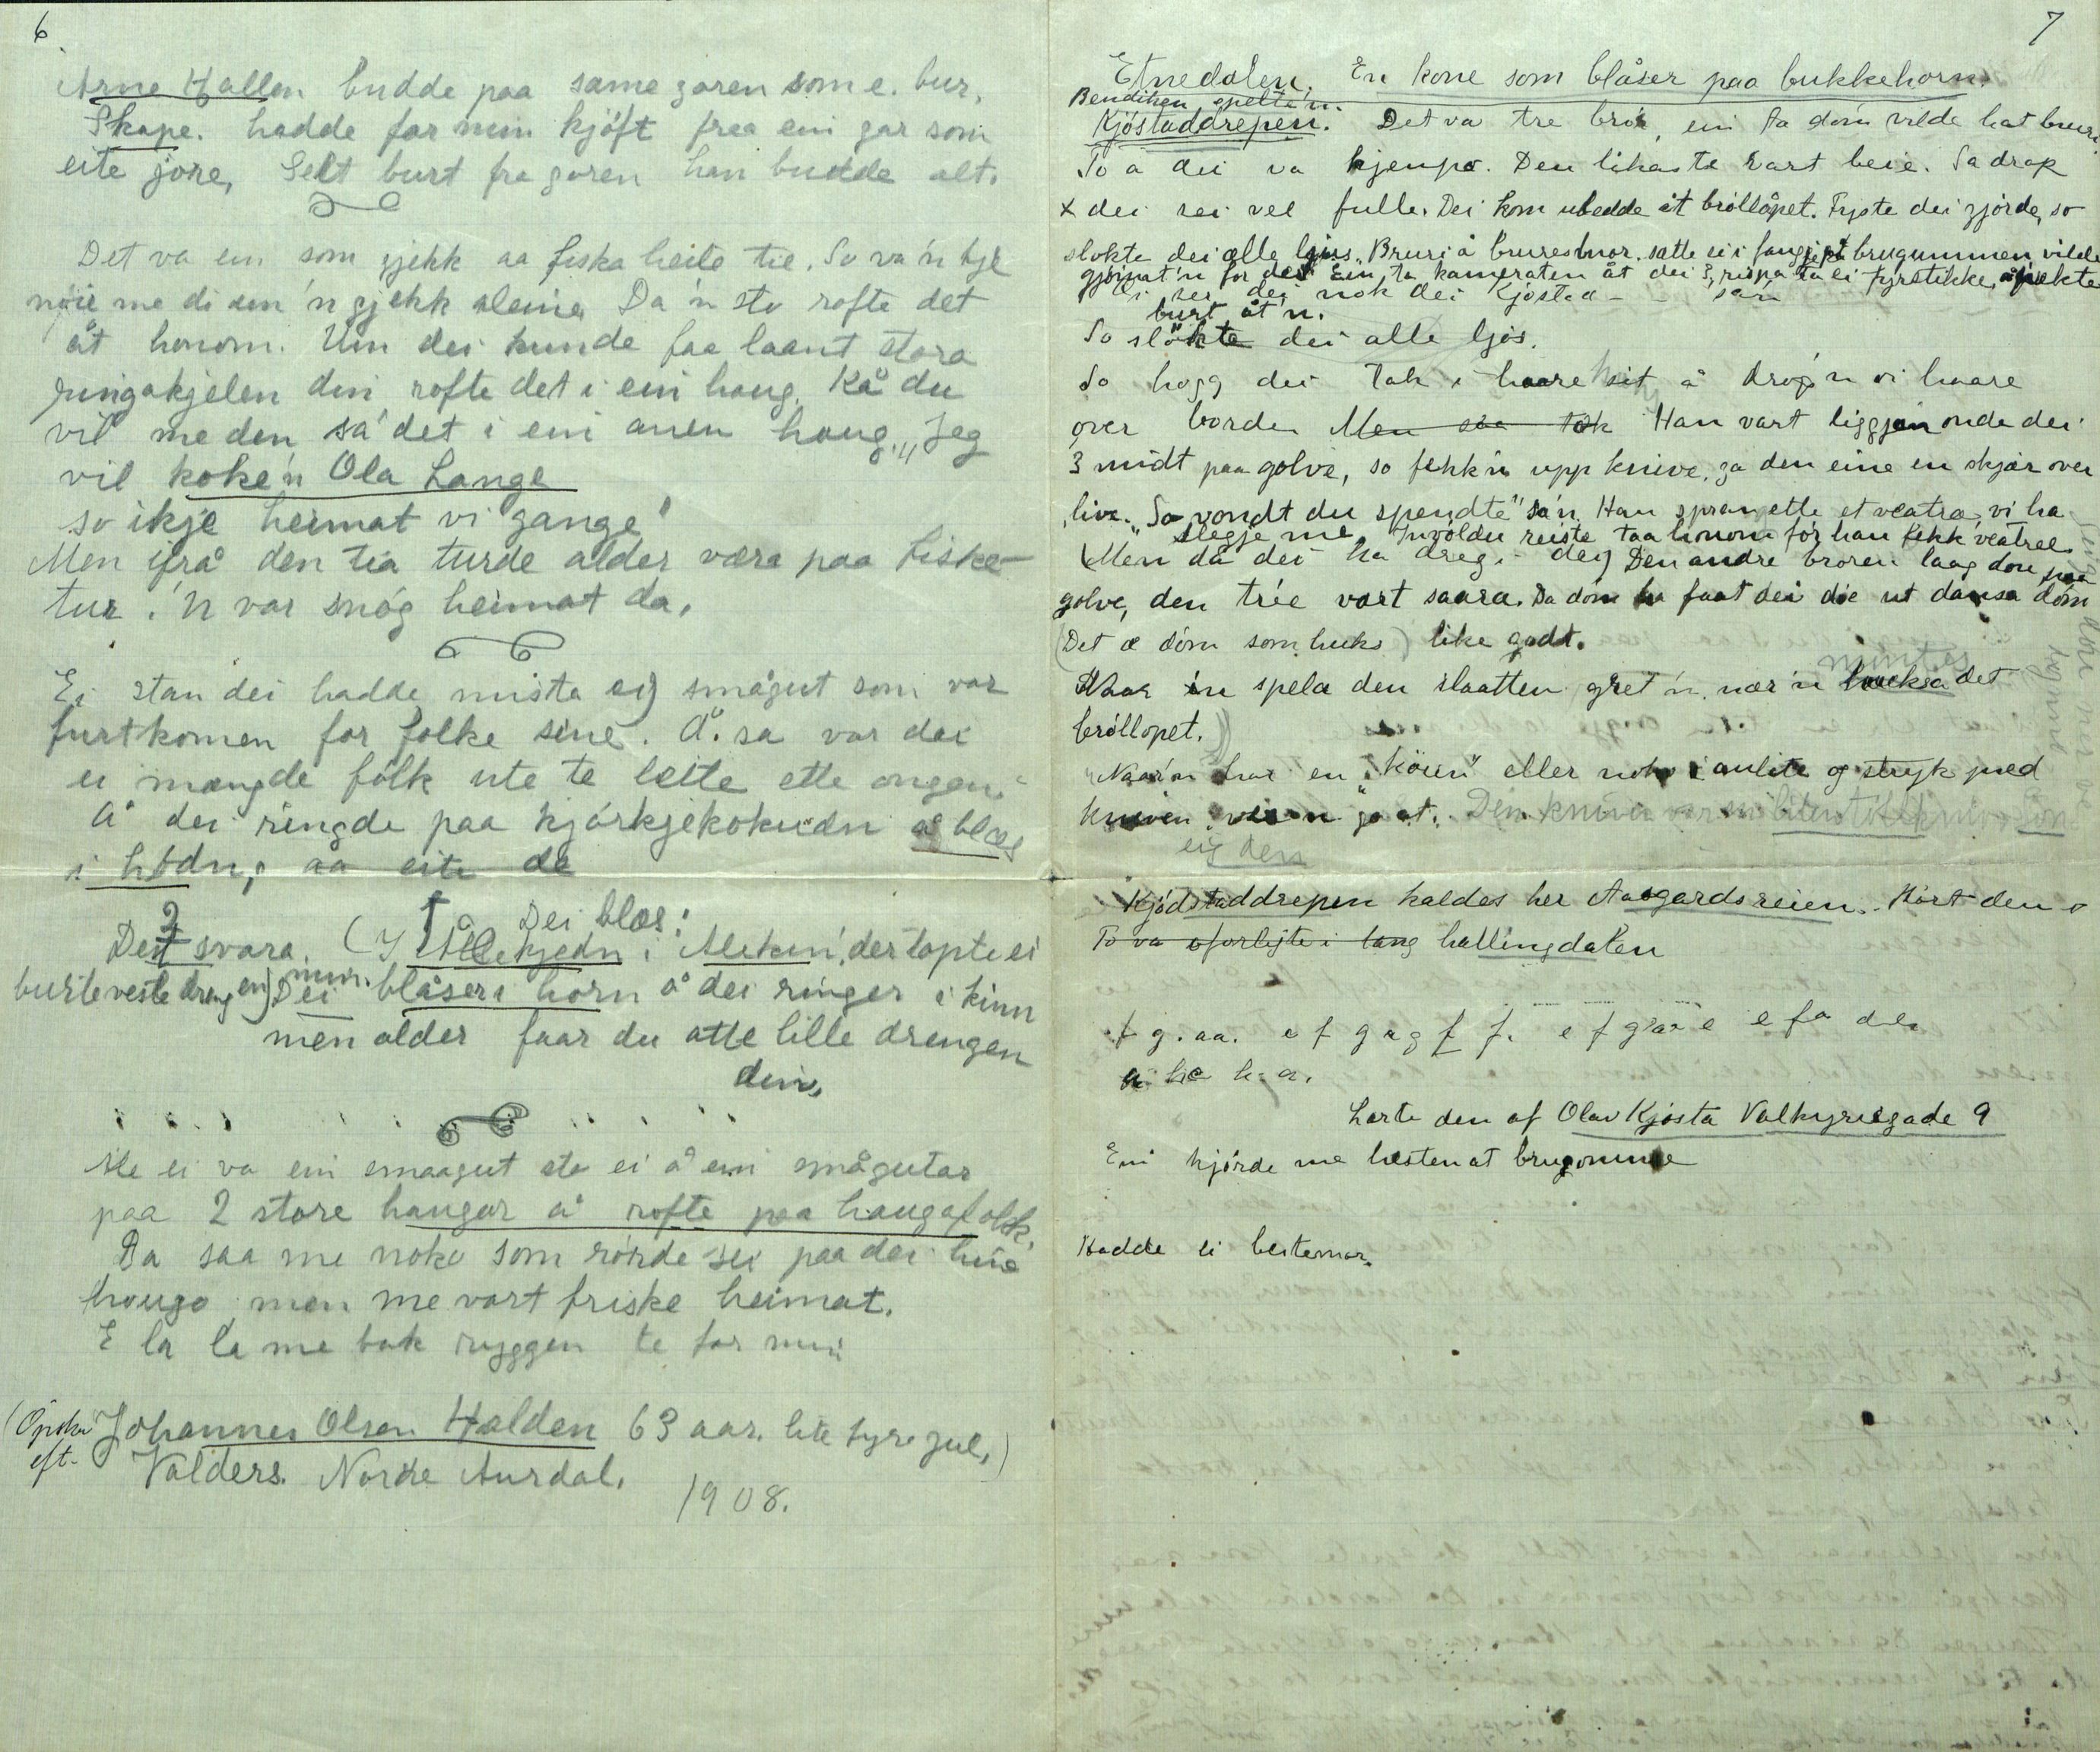 6
Arne Hallen budde paa same garen som e. bur,
Skape. hadde far min kjöft fraa ein gar som
eite jore, Selt burt fra garen han budde alt.
Det va ein som gjekk aa fiska heile tie. So va'n
nöie me di sen 'n gjekk aleine Da 'n sto rofte det
åt honom. Um dei kunde faa laant stora
ringakjelen din rofte det i ein haug. Kå du
vil me den sa' det i ein anen haug. "Jeg
vil koke'n Ola Lange
so ikje heimat vi gange"
Men ifrå den tia turde alder væra paa fiske-
tur. 'n var snög heimat da.
Ei stan dei hadde mista ei smågut som var
burtkomen for folke sine. Å sa var dei
ei mængde fólk ute te leite ette ongen.
Å dei ringde paa kjörkjekokudn å blæs
i hódn, aa eite de
Dei blæs:
Det svara. (I Ålekjedn i Alekin, der tapte ei
burte vesle drengen min. Dei blåser i horn å dei ringer i kinn
men alder faar du atte lille drengen
din.
Me ei va ein smaagut sto ei å ein smågutar
paa 2 store haugar å rofte paa haugafolk.
Da saa me noko som rörde sei paa dei hine
haugo men me vart friske heimat.
E la la me bak ryggen te far min
(Opskr. eft. Johannes Olsen Halden 63 aar. lite fyre jul,)
Valders. Nordre Aurdal.
1908.
7
Etnedalen. En kone som blåser paa bukkehorn.
Bendiken spelte'n.
Kjöstaddrepen. Det va tre brör, ein ta dóm vilde hat bruri
To å dei va kjempo. Den likaste vart beie. Sa drak
x dei sei vel fulle. Dei kom ubedde åt bróllåpet. Fyste dei gjórde, so
slokte dei alle ljós. Bruri å bruresbror satte ei i fangjet brugummen vilde
gjömat'n for dei Ein ta kameraten åt dei 3, rispa ta ei fyrstikke, å pekte
Ai ser dei nok dei Kjósta - - sa'n
burt åt'n.
So slökte dei alle ljós.
So hogg dei tak i haare sit å drog'n vi haare
over borde. Men saa tok Han vart liggjan onde dei
3 midt paa golve, so fekk'n upp knive, ga den eine en skjær over
live. "So vondt du spendte" sa'n. Han sprang ette et veatra, vi ha
slegje me Invöldu reiste taa honom för han fekk veatree.
Men då dei ha dreg. dei) Den andre broren laag dou paa
golve, den trie vart saara. Da dóm ha faat dei die ut dansa dóm
(Det æ dóm som huks) like godt.
Naar 'n spela den slaatten gret 'n, nær 'n mintes det
bróllopet.
Naar'n har en "köien" eller noko i anlite og stryk med
kniven, "veson" ga at. Den kniven var
eig den
Kjödstaddrepen kaldes her Aasgardsreien. Hört den o
To va oforlejte i lang hallingdalen
Lærte den af Olav Kjösta Valkyriegade 9
Ein kjörde me hesten at brugomme
Hadde ei bestemor.